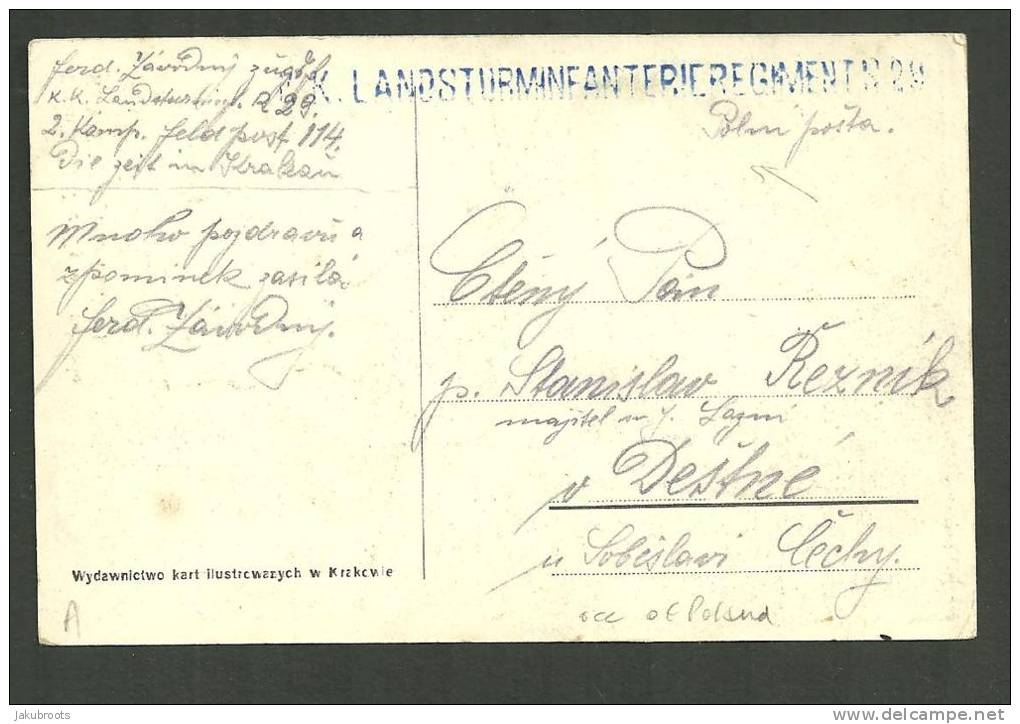 Ferd. Závodný zugsf.
K.K. Landsturminf. R 29.
2. Kamp. Feldpost 114.
Die zeit in Krakau
K.K. LANDSTURMINFANTERIEREGIMENT N 29
Polní pošta.
Mnoho pozdravů a
zpomínek zasílá
Ferd. Závodný.
Ctěný Pán
p. Stanislav Řezník
majitel Lázní
v Deštné
u Soběslavi Čechy.
Wydawnictwo kart ilustrowanych w Krakowie
A
occ of Poland
jakubroots